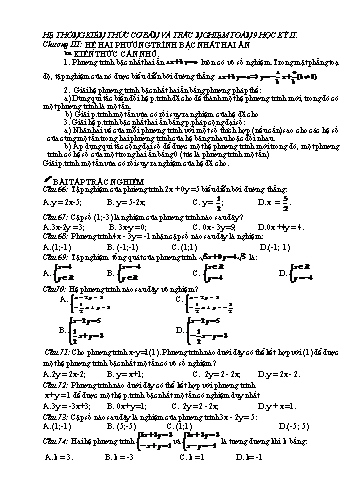 HỆ THỐNG KIẾN THỨC CƠ BẢN VÀ TRẮC NGHIỆM TOÁN 9 HỌC KỲ II.
Chương III: HỆ HAI PHƯƠNG TRÌNH BẬC NHẤT HAI ẨN
KIẾN THỨC CẦN NHỚ
1. Phương trình bậc nhất hai ẩn ax + by = c luôn có vô số nghiệm. Trong mặt phẳng toạ
độ, tập nghiệm của nó được biểu diễn bởi đường thẳng
2. Giải hệ phương trình bậc nhất hai ẩn bằng phương pháp thế:
a) Dùng qui tắc biến đổi hệ p.trình đã cho để thành một hệ phương trình mới, trong đó có
một phương trình là một ẩn.
b) Giải p.trình một ẩn vừa có rồi suy ra nghiệm của hệ đã cho
3. Giải hệ p.trình bậc nhất hai ẩn bằng p.pháp cộng đại số:
a) Nhân hai vế của mỗi phương trình với một số thích hợp (nếu cần) sao cho các hệ số
của cùng một ẩn trong hai phương trình của hệ bằng nhau hoặc đối nhau.
b) Áp dụng qui tắc cộng đại số để được một hệ phương trình mới trong đó, một phương
trình có hệ số của một trong hai ẩn bằng 0 (tức là phương trình một ẩn)
Giải p.trình một ẩn vừa có rồi suy ra nghiệm của hệ đã cho.
BÀI TẬP TRẮC NGHIỆM
Câu 66: Tập nghiệm của phương trình 2x + 0y = 5 biểu diễn bởi đường thẳng:
A. y = 2x-5; B. y = 5-2x; C. y = 1/2; D. x = 5/2.
Câu 67: Cặp số (1;-3) là nghiệm của phương trình nào sau đây?
A. 3x-2y = 3; B. 3x-y = 0; C. 0x - 3y=9; D. 0x + y = 4.
Câu 68: Phương trình 4x - 3y = -1 nhận cặp số nào sau đây là nghiệm:
A. (1;-1) B. (-1;-1) C. (1;1) D.(-1; 1)
Câu 69: Tập nghiệm tổng quát của phương trình là:
A. B. C. D.
Câu 70: Hệ phương trình nào sau đây vô nghiệm?
A. C.
B. D.
Câu 71: Cho phương trình x-y=1 (1). Phương trình nào dưới đây có thể kết hợp với (1) để được
một hệ phương trình bậc nhất một ẩn có vô số nghiệm?
A. 2y = 2x-2; B. y = x+1; C. 2y = 2 - 2x; D. y = 2x - 2.
Câu 72: Phương trình nào dưới đây có thể kết hợp với phương trình
x+y = 1 để được một hệ p.trình bậc nhất một ẩn có nghiệm duy nhất
A. 3y = -3x+3; B. 0x+y=1; C. 2y = 2 - 2x; D. y + x =1.
Câu 73: Cặp số nào sau đây là nghiệm của phương trình 3x - 2y = 5:
A. (1;-1) B. (5;-5) C. (1;1) D.(-5; 5)
Câu 74: Hai hệ phương trình và là tương đương khi k bằng:
A. k = 3. B. k = -3 C. k = 1 D. k= -1